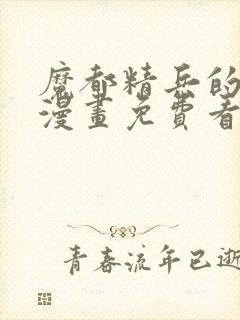 魔都精兵的
漫畫免費看
青春流年已逝